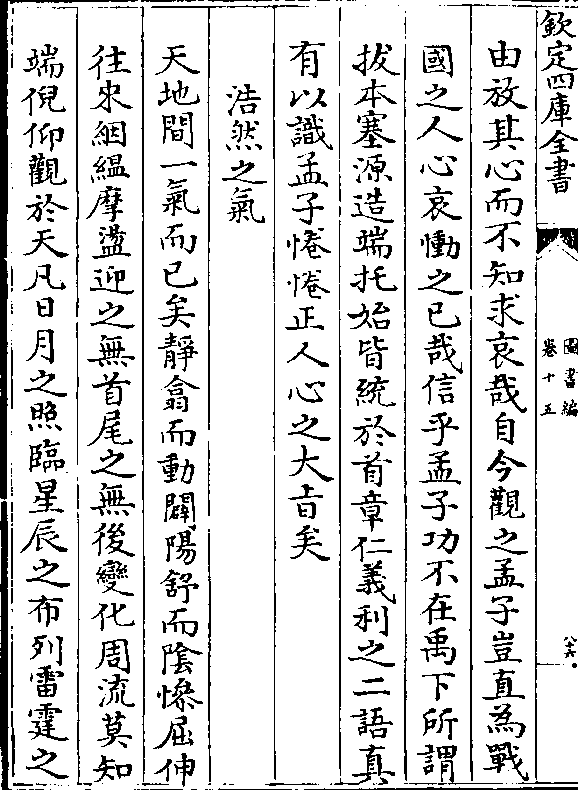 欽定四庫全書
圖書編
卷十五
八十六
由放其心而不知求哀哉自今觀之孟子豈直為戰
國之人心哀慟之已哉信乎孟子功不在禹下所謂
拔本塞源造端托始皆統於首章仁義利之二語真
有以識孟子惓惓正人心之大旨矣
浩然之氣
天地間一氣而已矣靜翕而動闢陽舒而陰慘屈伸
往來絪縕摩盪迎之無首尾之無後變化周流莫知
端倪仰觀於天凡日月之照臨星辰之布列雷霆之